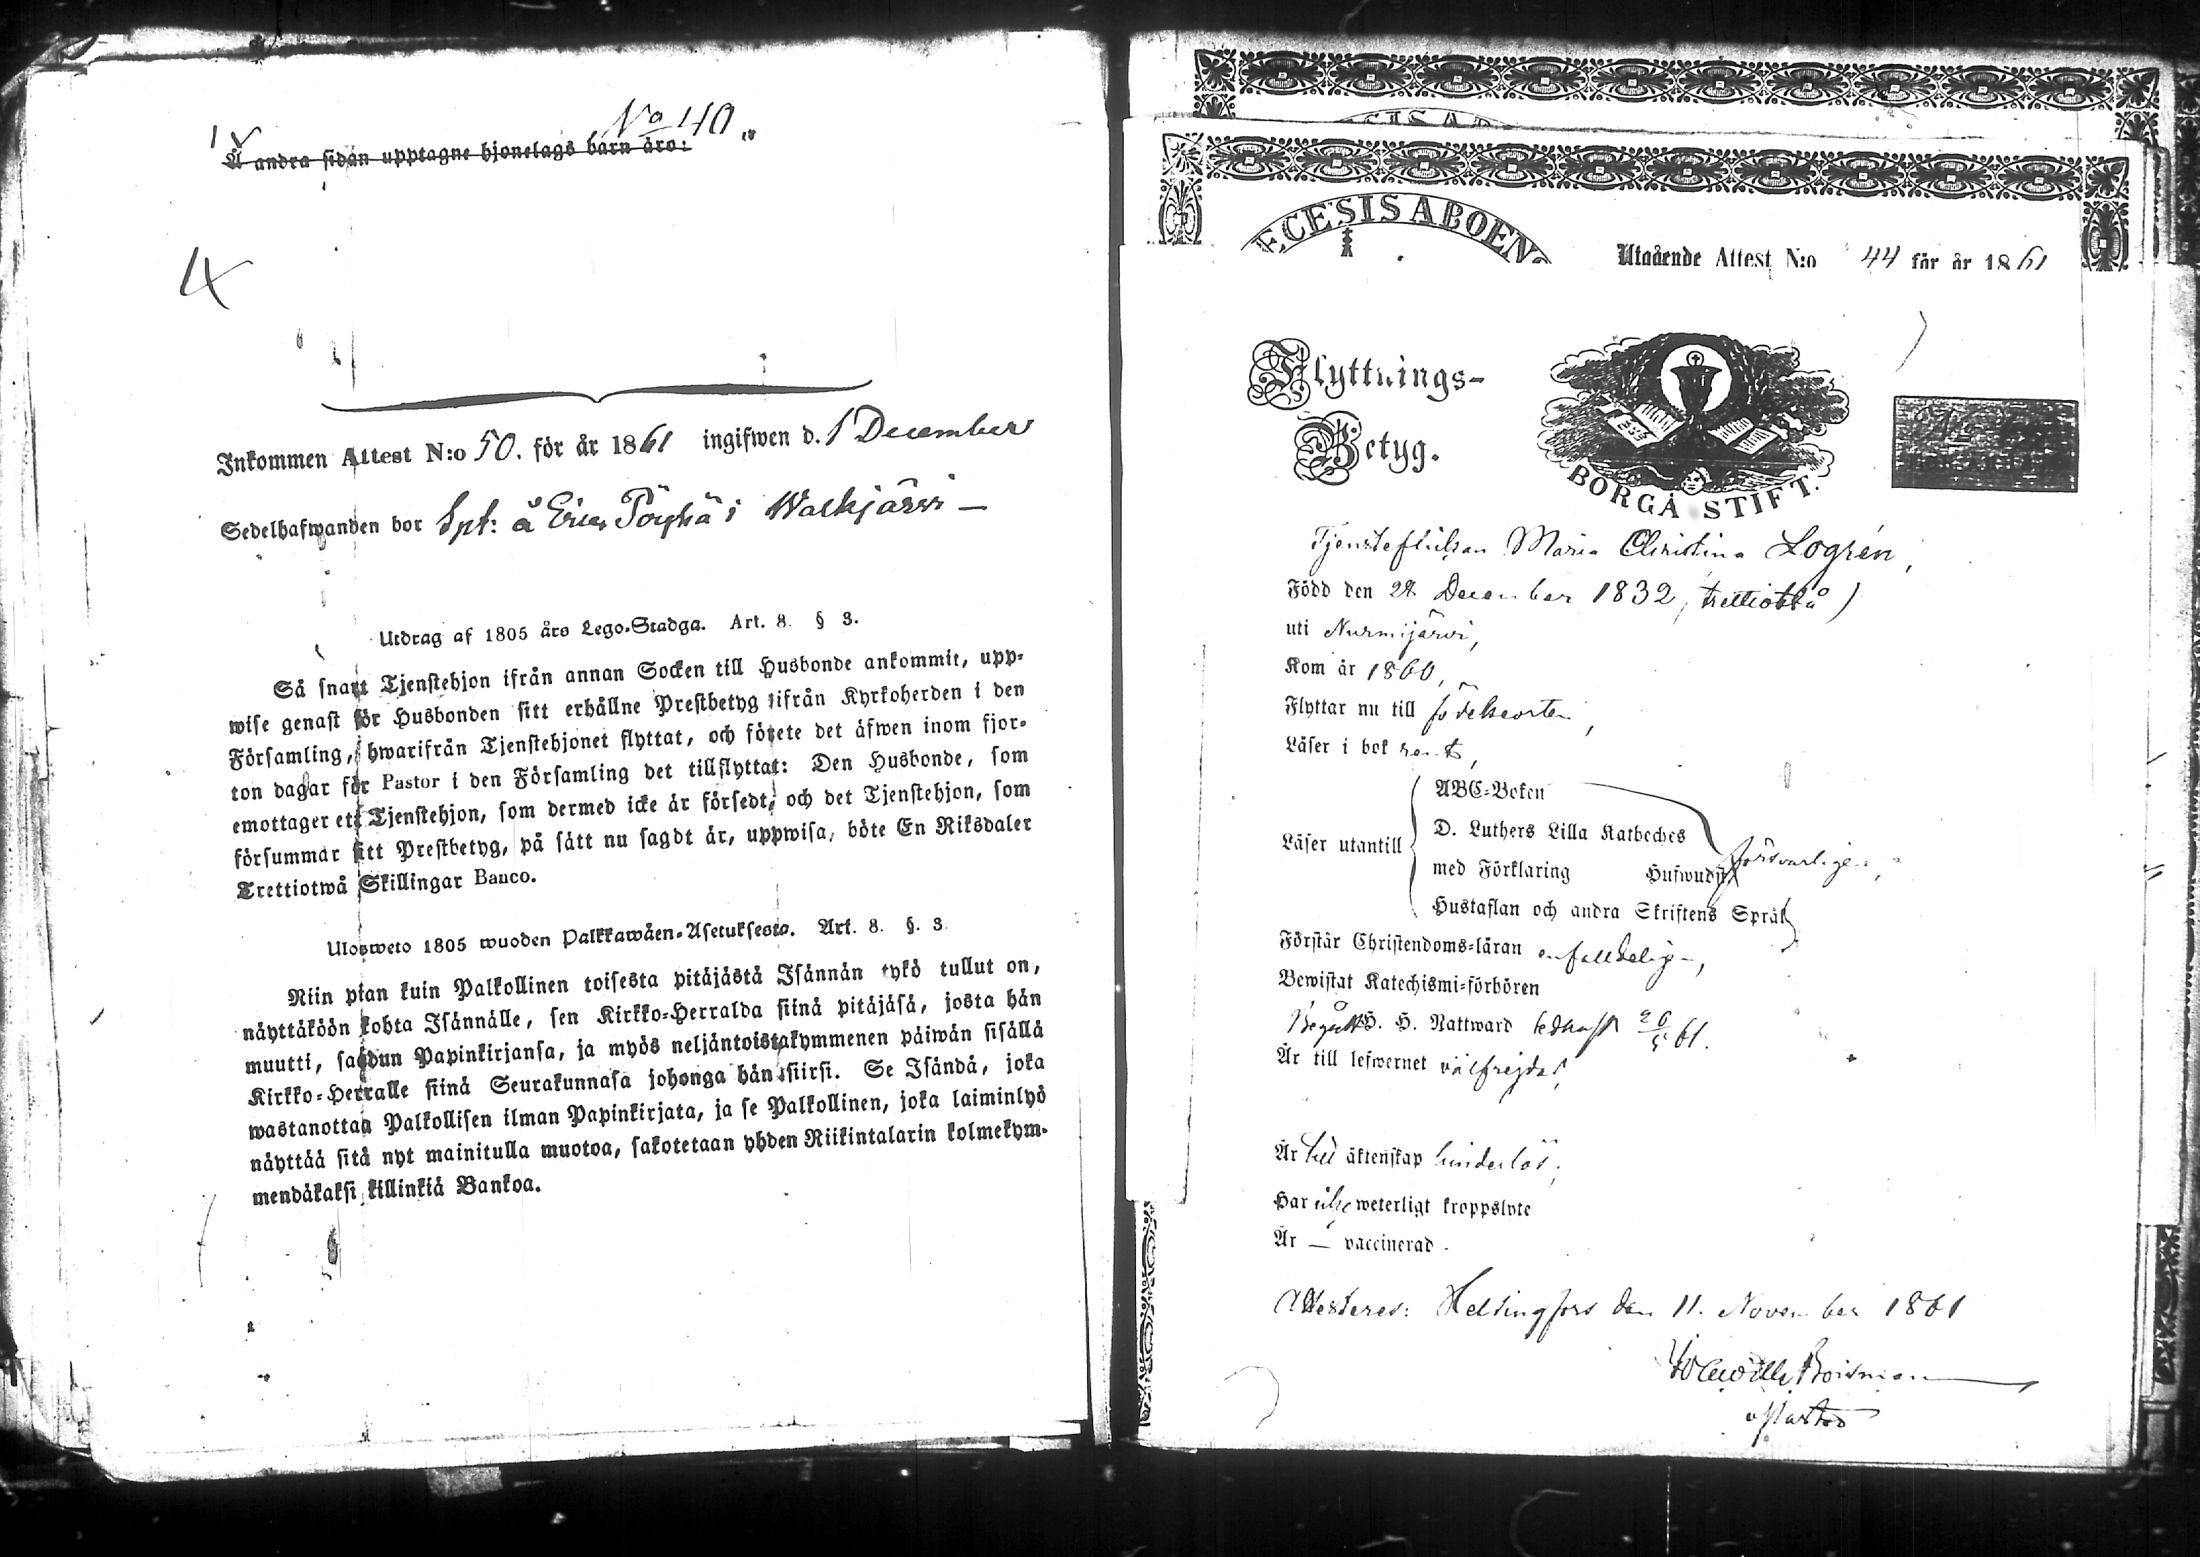 No 40.
Å andra sidan upptagne hjonelags barn äro:
Inkommen Attest N:o 50. för år 1861 ingifwen d. 1 December
Sedelhafwanden bor Spt: å Erices Pöyhä i Walkjärwi –
Utdrag af 1805 års Lego-Stadga. Art. 8. § 3.
Så snart Tjenstehjon ifrån annan Socken till Husbonde ankommit, upp-
wise genast för Husbonden sitt erhållne Prestbetyg ifrån Kyrkoherden i den
Församling, hwarifrån Tjenstehjonet flyttat, och förete det äfwen inom fjor-
ton dagar för Pastor i den Församling det tillflyttat: Den Husbonde, som
emottager ett Tjenstehjon, som dermed icke är försedt, och det Tjenstehjon, som
försummar sitt Prestbetyg, på sätt nu sagdt är, uppwisa, böte En Riksdaler
Trettiotwå Skillingar Banco.
Ulosweto 1805 wuoden Palkkawäen-Asetuksesta. Art. 8. §. 3.
Niin pian kuin Palkollinen toisesta pitäjästä Isännän tykö tullut on,
näyttäköön kohta Isännälle, sen Kirkko-Herralda siinä pitäjäsä, josta hän
muutti, saadun Papinkirjansa, ja myös neljäntoistakymmenen päiwän sisällä
Kirkko-Herralle siinä Seurakunnasa johonga hän siirsi. Se Isändä, joka
wastanottaa Palkollisen ilman Papinkirjata, ja se Palkollinen, joka laiminlyö
näyttää sitä nyt mainitulla muotoa, sakotetaan yhden Riikintalarin kolmekym-
mendäkaksi killinkiä Bankoa.
ECESIS ABOEN
Utgående Attest N:o 44 för år 1861
Flyttnings-
Betyg.
BORGÅ STIFT.
Tjensteflickan Maria Christina Logrén,
Född den 22 December 1832, (trettiotvå)
uti Nurmijärvi,
Kom år 1860,
Flyttar nu till födelseorten,
Läser i bok rent,
ABC-Boken
D. Luthers Lilla Katheches
Läser utantill
med Förklaring Hufwudst. försvarligen,
Hustaflan och andra Skriftens Språk
Förstår Christendoms-läran enfaldeligen,
Bewistat Katechismi-förhören
Begått H. H. Nattward sednast 26/5 61.
Är till lefwernet välfrejdad,
Är till äktenskap hinderlös,
Har icke weterligt kroppslyte
Är — vaccinerad.
Attesteres: Helsingfors den 11. November 1861
Boisman
v Pastor